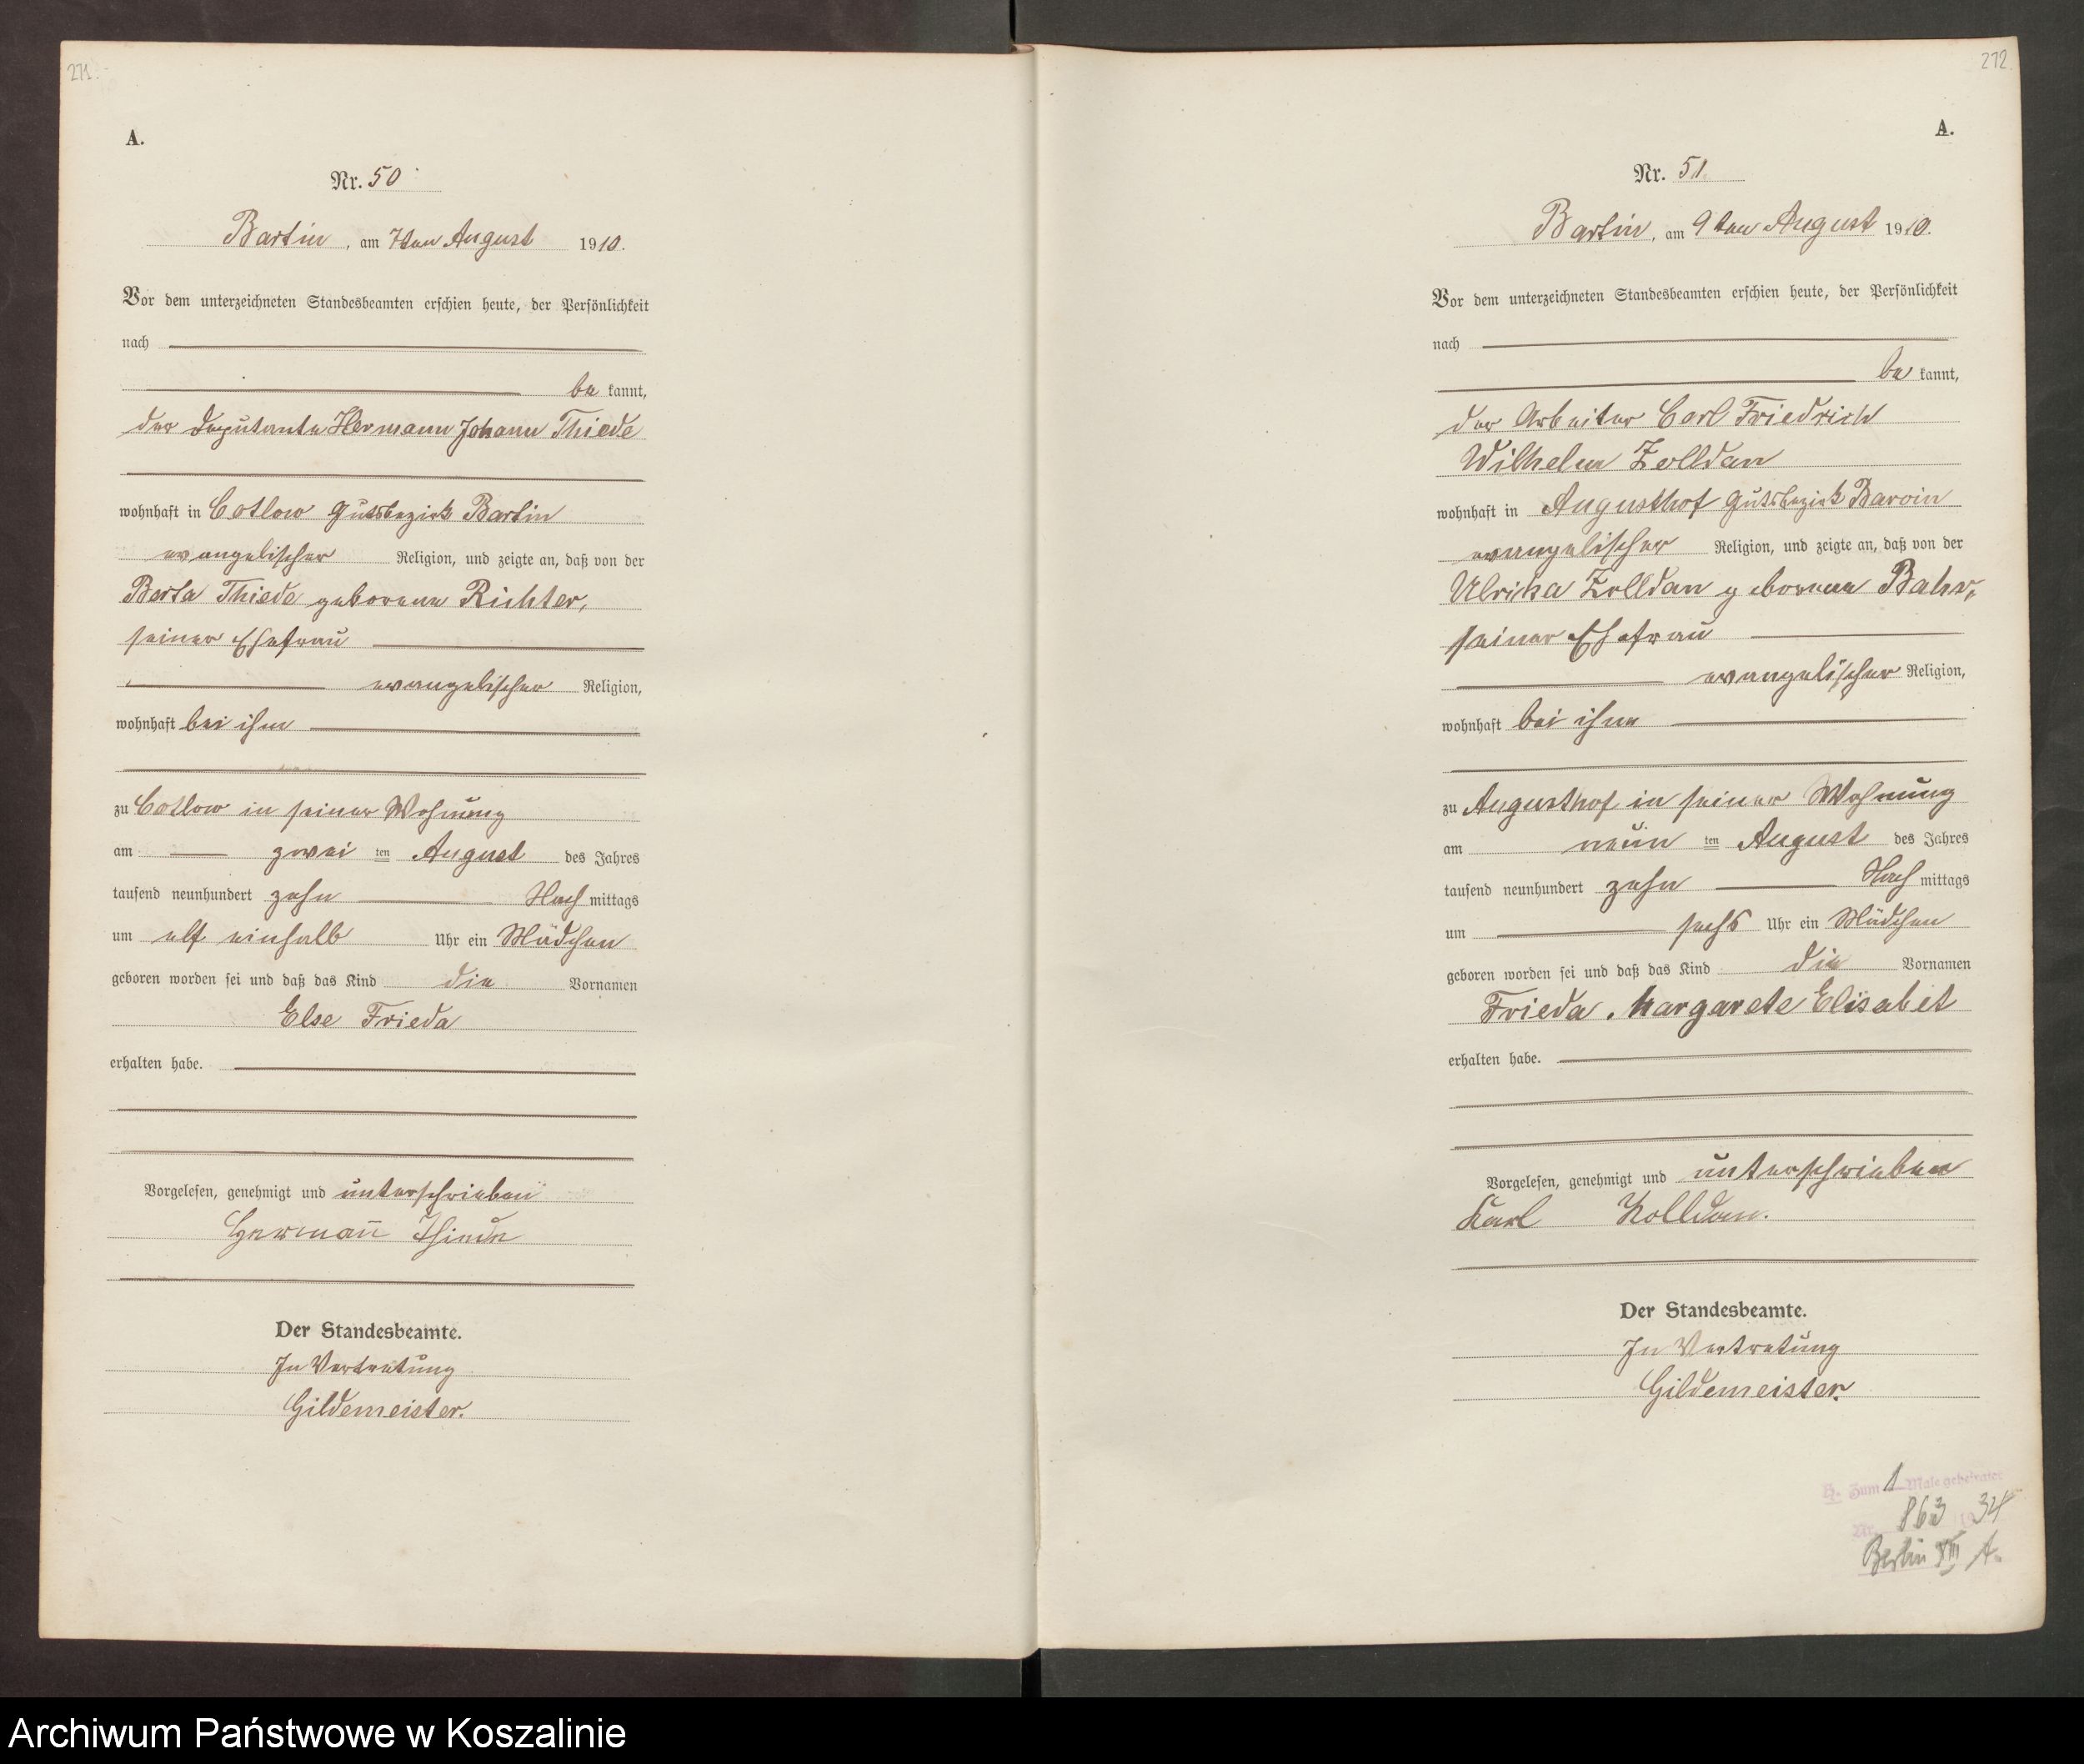 271.
A.
Nr. 50
Bartin, am 7ten August 1910.
Vor dem unterzeichneten Standesbeamten erschien heute, der Persönlichkeit
nach
be kannt,
der Deputante Hermann Johann Thiede
wohnhaft in Cotlow Gutsbezirk Bartin
evangelischer Religion, und zeigte an, daß von der
Berta Thiede geborene Richter,
seiner Ehefrau
evangelischer Religion,
wohnhaft bei ihm
zu Cotlow in seiner Wohnung
am zwei ten August des Jahres
tausend neunhundert zehn Nach mittags
um elf einhalb Uhr ein Mädchen
geboren worden sei und daß das Kind die Vornamen
Else Frieda
erhalten habe.
Vorgelesen, genehmigt und unterschrieben
Hermann Thiede
Der Standesbeamte.
In Vertretung
Gildemeister.
272.
A.
Nr. 51.
Bartin, am 9ten August 1910.
Vor dem unterzeichneten Standesbeamten erschien heute, der Persönlichkeit
nach
be kannt,
der Arbeiter Carl Friedrich
Wilhelm Zolldan
wohnhaft in Augusthof Gutsbezirk Barvin
evangelischer Religion, und zeigte an, daß von der
Ulrika Zolldan geborene Bahr,
seiner Ehefrau
evangelischer Religion,
wohnhaft bei ihm
zu Augusthof in seiner Wohnung
am neun ten August des Jahres
tausend neunhundert zehn Nach mittags
um sechs Uhr ein Mädchen
geboren worden sei und daß das Kind die Vornamen
Frieda Margarete Elisabet
erhalten habe.
Vorgelesen, genehmigt und unterschrieben
Karl Zolldan.
Der Standesbeamte.
In Vertretung
Gildemeister.
H. Zum 1 Male geheiratet
Nr. 863 34
Berlin XIII A.
Archiwum Państwowe w Koszalinie